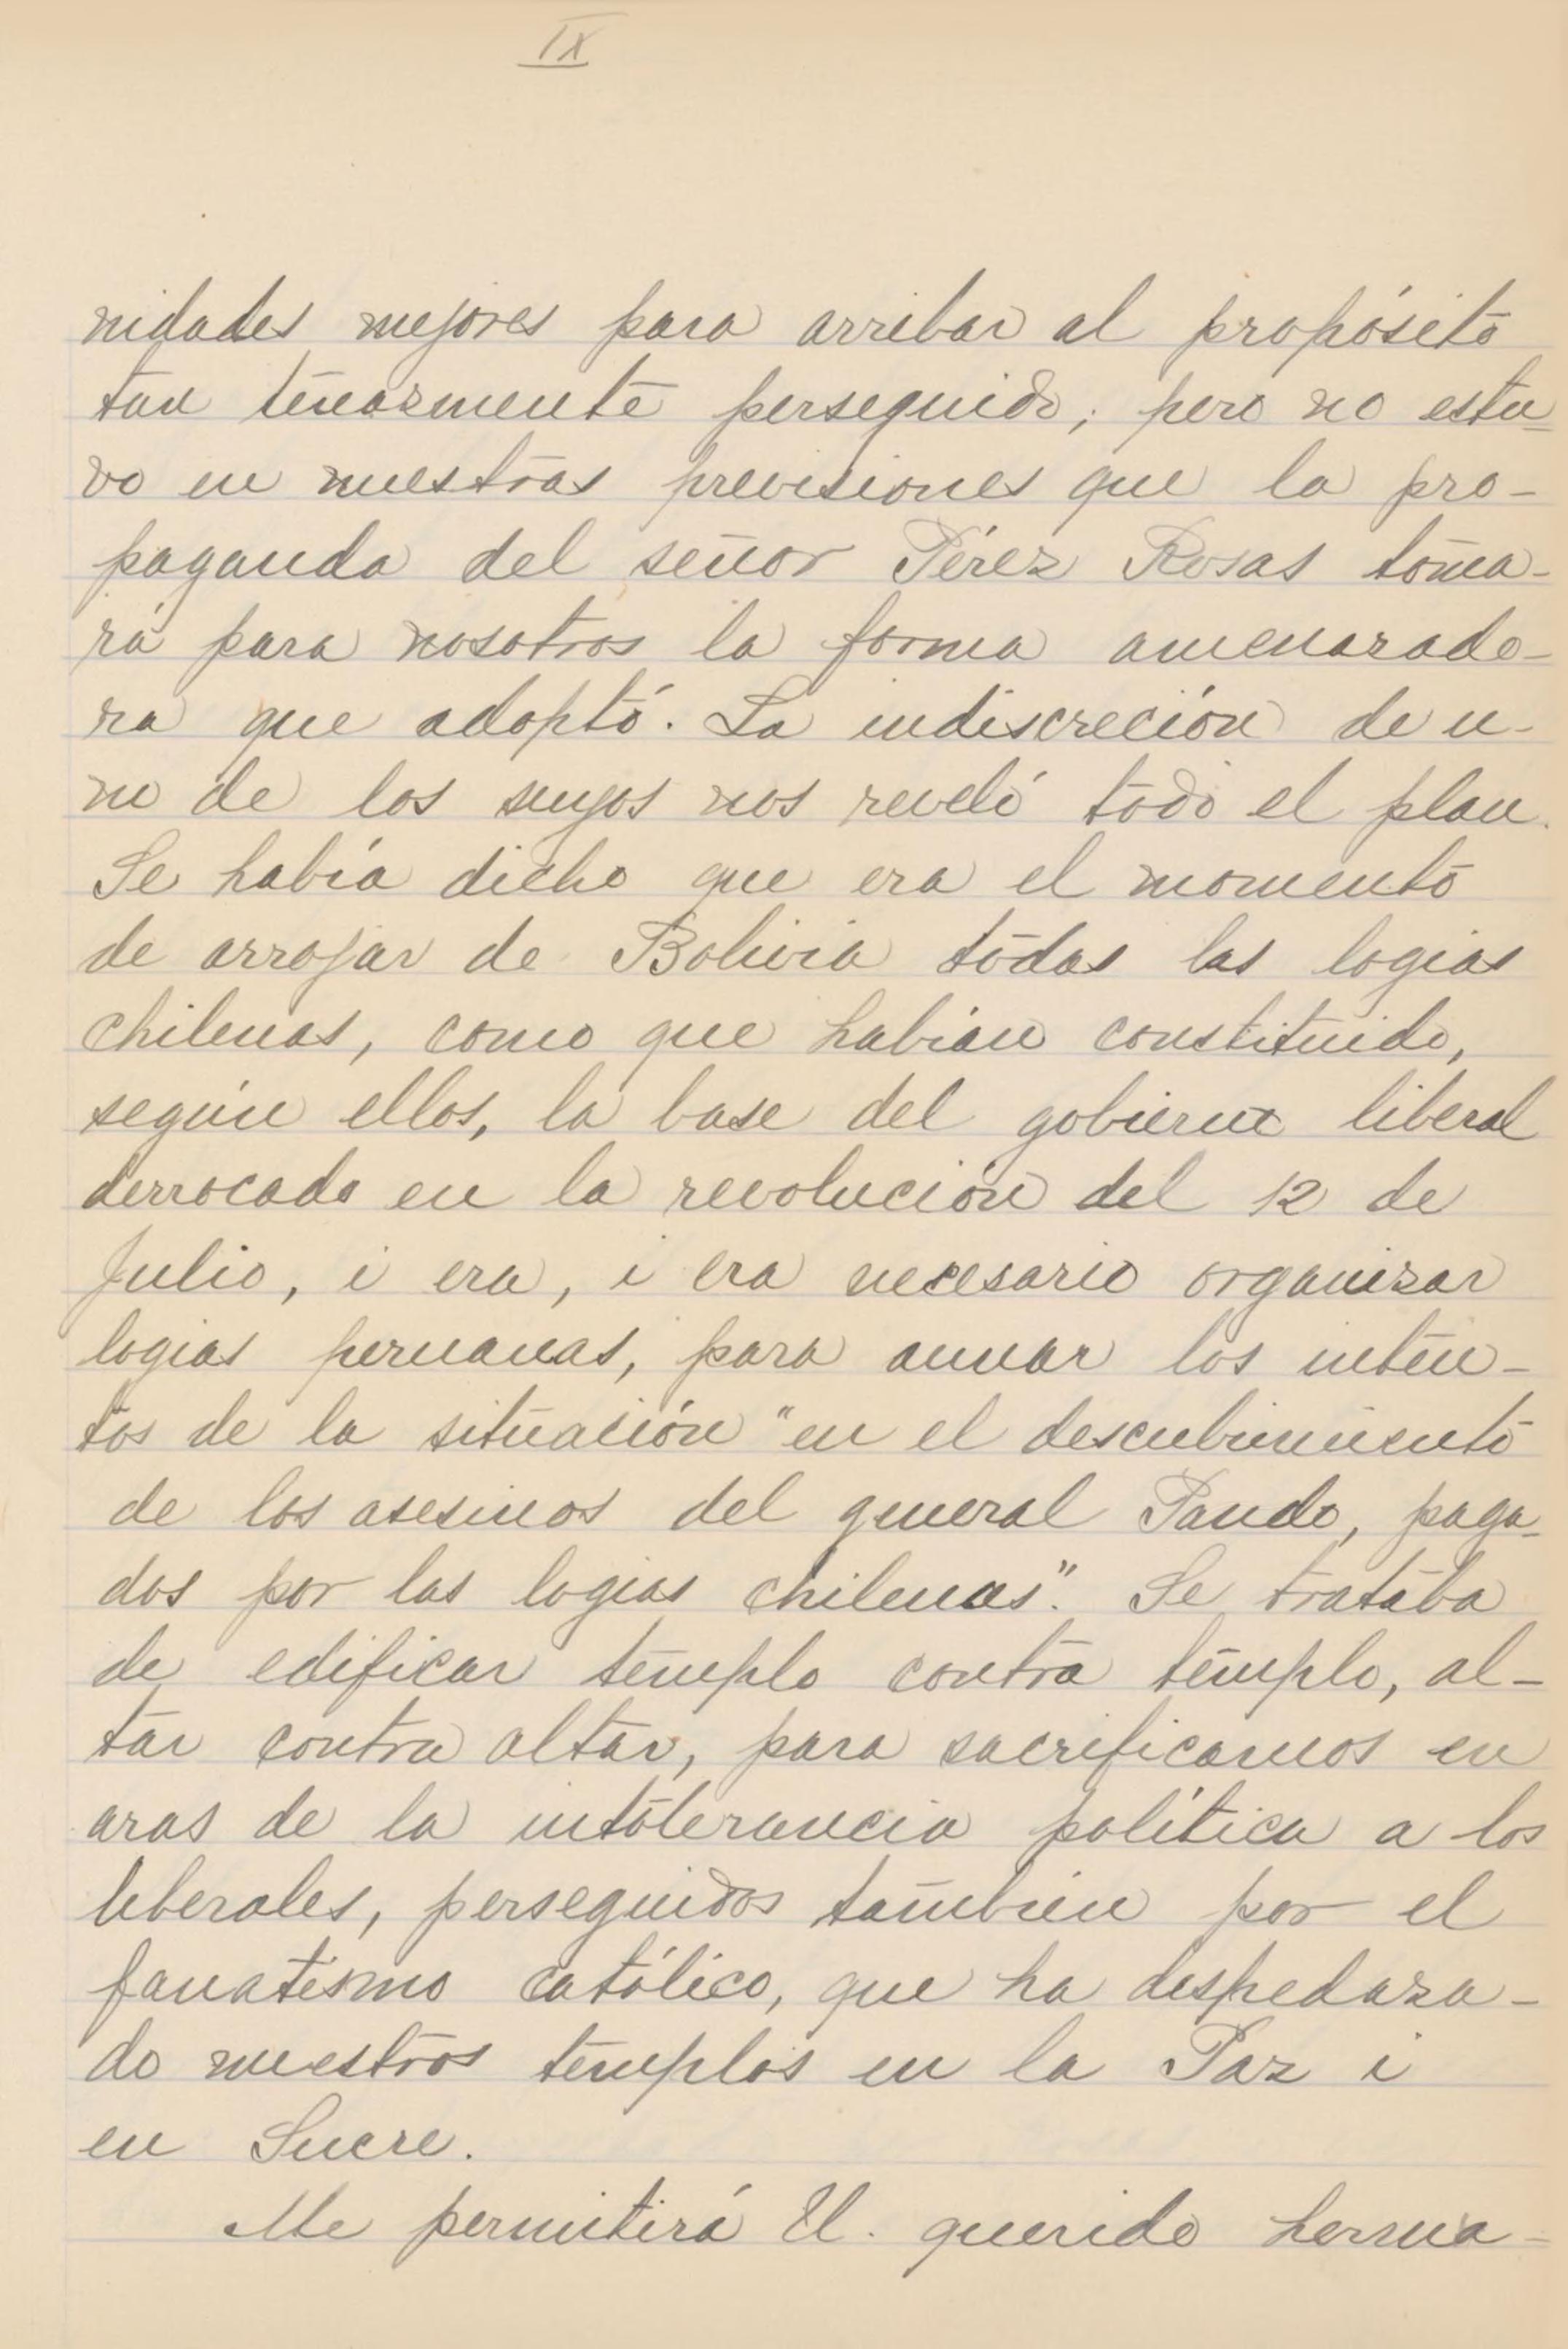 IX
nidades mejores para arribar al propósito
tan tenazmente perseguido; pero no estu-
vo en nuestras previsiones que la pro-
paganda del señor Pérez Rosas toma-
rá para nosotros la forma amenazado-
ra que adoptó. La indiscreción de u-
no de los suyos nos reveló todo el plan.
Se había dicho que era el momento
de arrojar de Bolivia todas las logias
chilenas, como que habían constituido,
según ellos, la base del gobierno liberal
derrocado en la revolución del 12 de
Julio, i era, i era necesario organizar
logias peruanas, para aunar los inten-
tos de la situación "en el descubrimiento
de los asesinos del general Pando, paga-
dos por las logias chilenas". Se trataba
de edificar templo contra templo, al-
tar contra altar, para sacrificarnos en
aras de la intolerancia política a los
liberales, perseguidos también por el
fanatismo católico, que ha despedaza-
do nuestros templos en la Paz i
en Sucre.
Me permitirá U. querido herma-